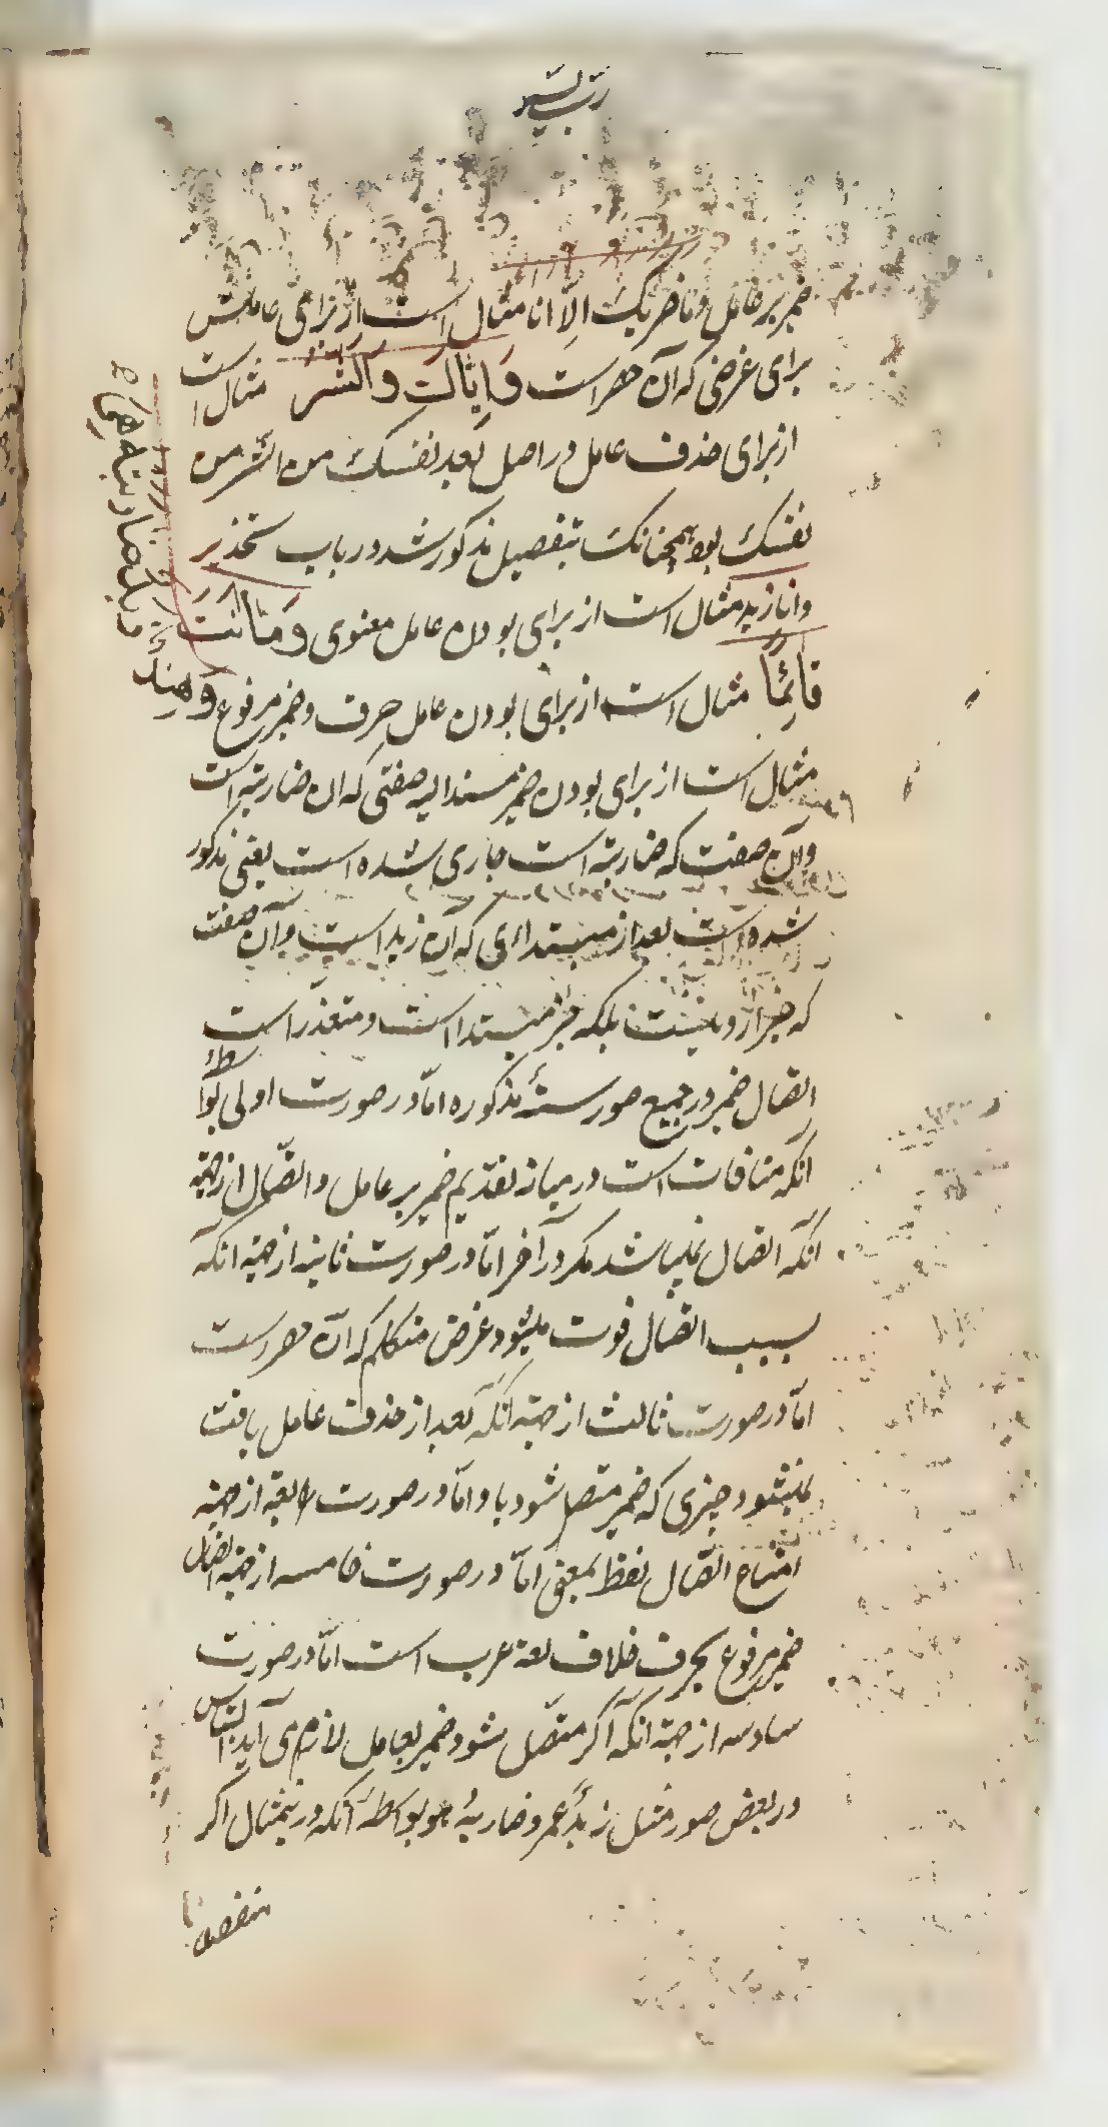 رب یسر
ضمیر بر عامل و ما ضربک الّا انا مثال است از برای عاملش
برای غرضی که آن حصر است وَاِیّاکَ وَالشَّر مثال است
از برای حذف عامل در اصل بَعِّد نفسک من الشّر من
نفسک بود همچنانکه بتفصیل مذکور شد در باب تحذیر
و انا زید مثال است از برای بودن عامل معنوی وَمَا اَنْتَ
قَائِمًا مثال است از برای بودن عامل حرف و ضمیر مرفوع وَهِنْدٌ
زید ضاربته هی
مثال است از برای بودن ضمیر مسند الیه صفتی که ان ضاربته است
و آن صفت که ضاربته است جاری شده است یعنی مذکور
شده است بعد از مبتدائی که آن زید است و آن صفت
که خبر از و نیست بلکه خبر مبتدا است و متعذر است
اتصال ضمیر در جمیع صور ستهٔ مذکوره امّا در صورت اولی بواسطهٔ
انکه منافات است در میانه تقدیم ضمیر بر عامل و اتّصال از جهة
آنکه اتصال نمیباشد مکر در آخر امّا در صورت ثانیه از جهة انکه
بسبب اتصال فوت میشود غرض متکلم که آن حصر است
امّا در صورت ثالث از جهة انکه بعد از حذف عامل یافت
نمیشود چیزی که ضمیر متصل شود باو امّا در صورت رابعه از جهة
امتناع اتّصال لفظ بمعنی امّا در صورت خامسه از جهة اتصال
ضمیر مرفوع بحرف خلاف لغة عرب است امّا در صورت
سادسه از جهة انکه اکر متصّل شود ضمیر بعامل لازم می آید التباس
در بعض صور مثل زیدٌ عمرو ضاربهُ هو بواسطهٔ آنکه در ینمثال اکر